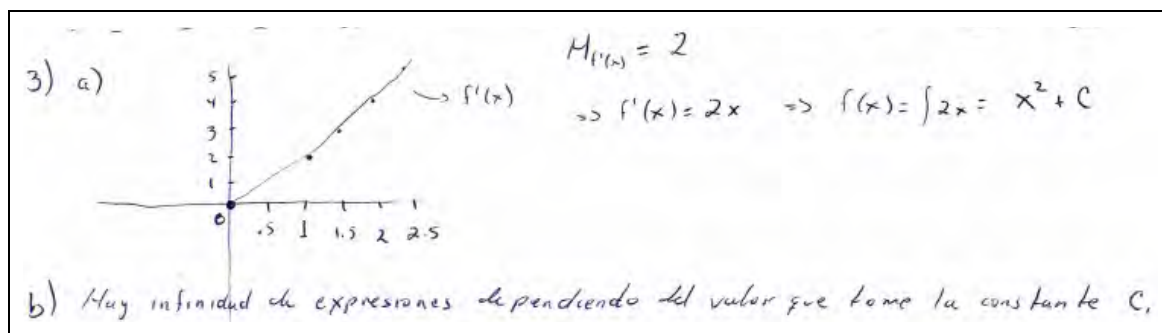 3) a)
5
4
3
2
1
0 .5 1 1.5 2 2.5
→ f'(x)
M_{f'(x)} = 2
=> f'(x) = 2x => f(x) = ∫2x = x² + C
b) Hay infinidad de expresiones dependiendo del valor que tome la constante C.